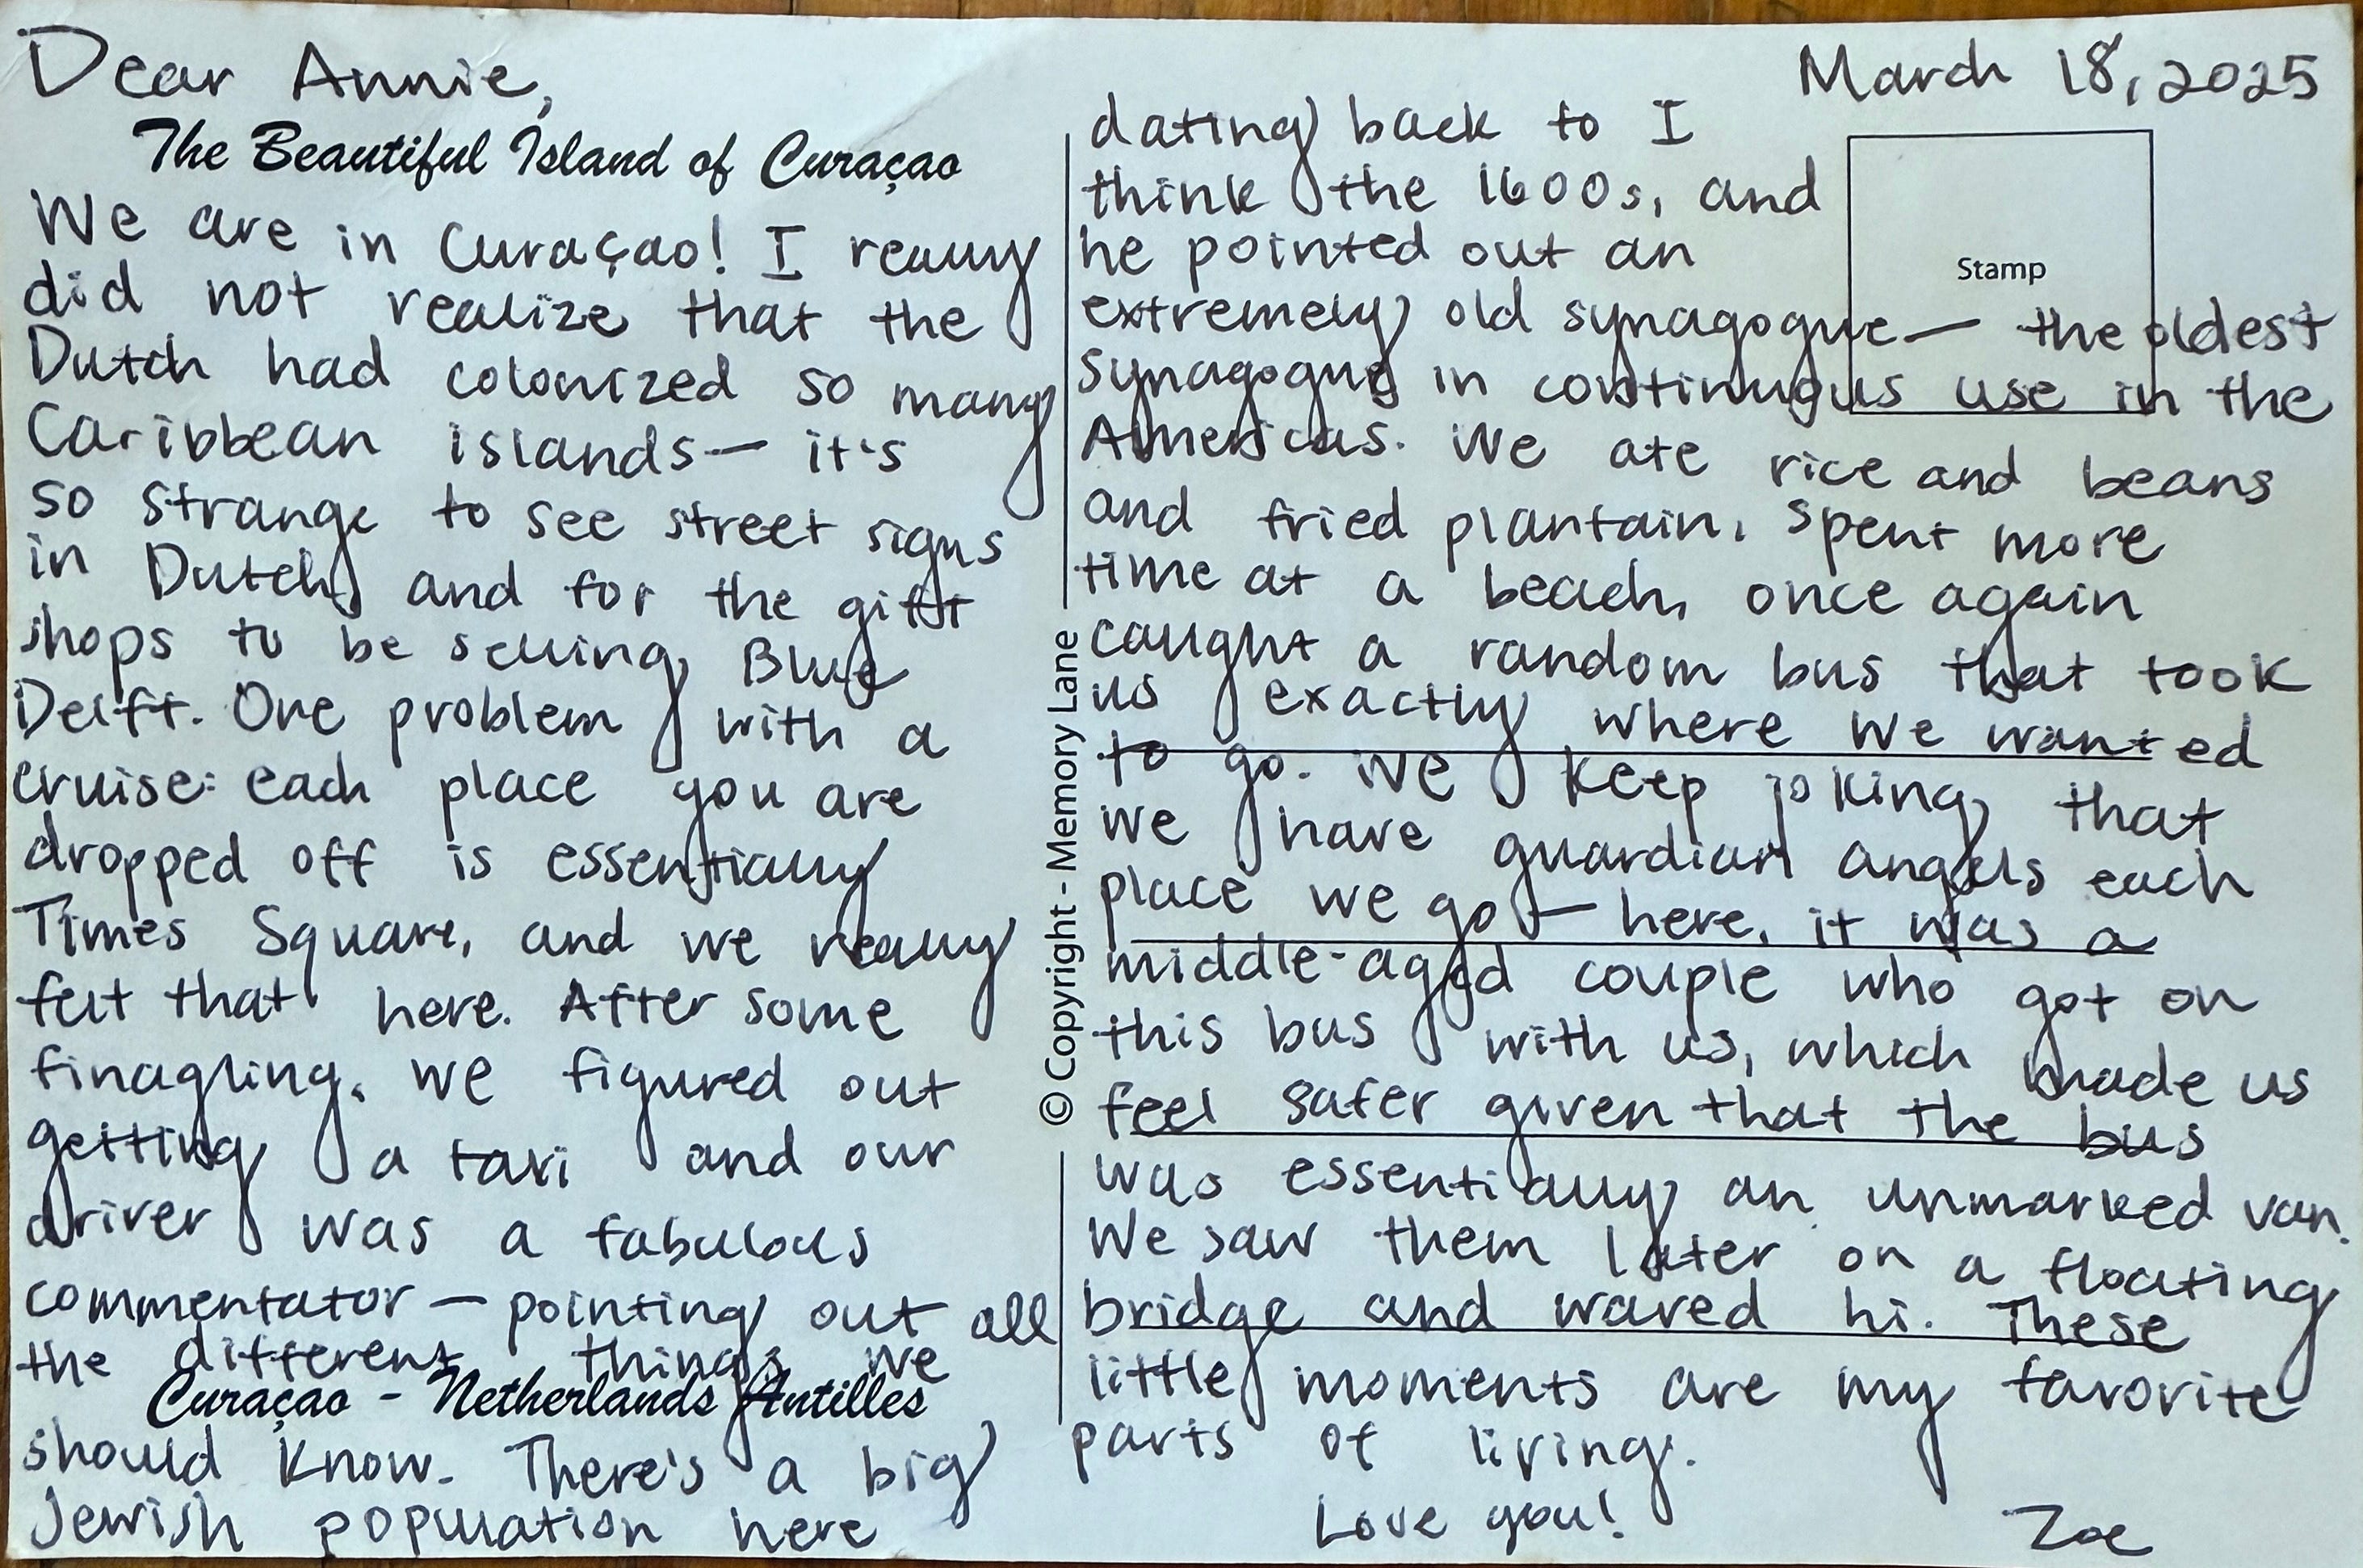 Dear Annie,
The Beautiful Island of Curaçao
We are in Curaçao! I really
did not realize that the
Dutch had colonized so many
Caribbean islands— it's
so strange to see street signs
in Dutch, and for the gift
shops to be selling Blue
Delft. One problem with a
cruise: each place you are
dropped off is essentially
Times Square, and we really
felt that here. After some
finagling, we figured out
getting a taxi and our
driver was a fabulous
commentator — pointing out all
the different things we
Curaçao - Netherlands Antilles
should know. There's a big
Jewish population here
© Copyright - Memory Lane
March 18, 2025
Stamp
dating back to I
think the 1600s, and
he pointed out an
extremely old synagogue— the oldest
synagogue in continuous use in the
Americas. We ate rice and beans
and fried plantain, spent more
time at a beach, once again
caught a random bus that took
us exactly where we wanted
to go. We keep joking that
we have guardian angels each
place we go — here, it was a
middle-aged couple who got on
this bus with us, which made us
feel safer given that the bus
was essentially an unmarked van.
We saw them later on a floating
bridge and waved hi. These
little moments are my favorite
parts of living.
Love you!
Zoe